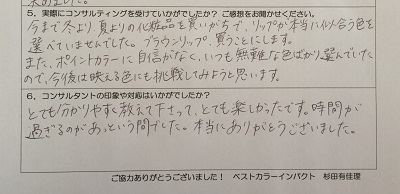 5．実際にコンサルティングを受けていかがでしたか？ ご感想をお聞かせください。
今まで冬より、夏よりの化粧品を買いがちで、リップが本当に似合う色を
選べていませんでした。ブラウンリップ、買うことにします。
また、ポイントカラーに自信がなく、いつも無難な色ばかり選んでいた
ので、今後は映える色にも挑戦してみようと思います。
6．コンサルタントの印象や対応はいかがでしたか？
とても分かりやすく教えて下さって、とても楽しかったです。時間が
過ぎるのがあっという間でした。本当にありがとうございました。
ご協力ありがとうございました！ ベストカラーインパクト 杉田有佳理